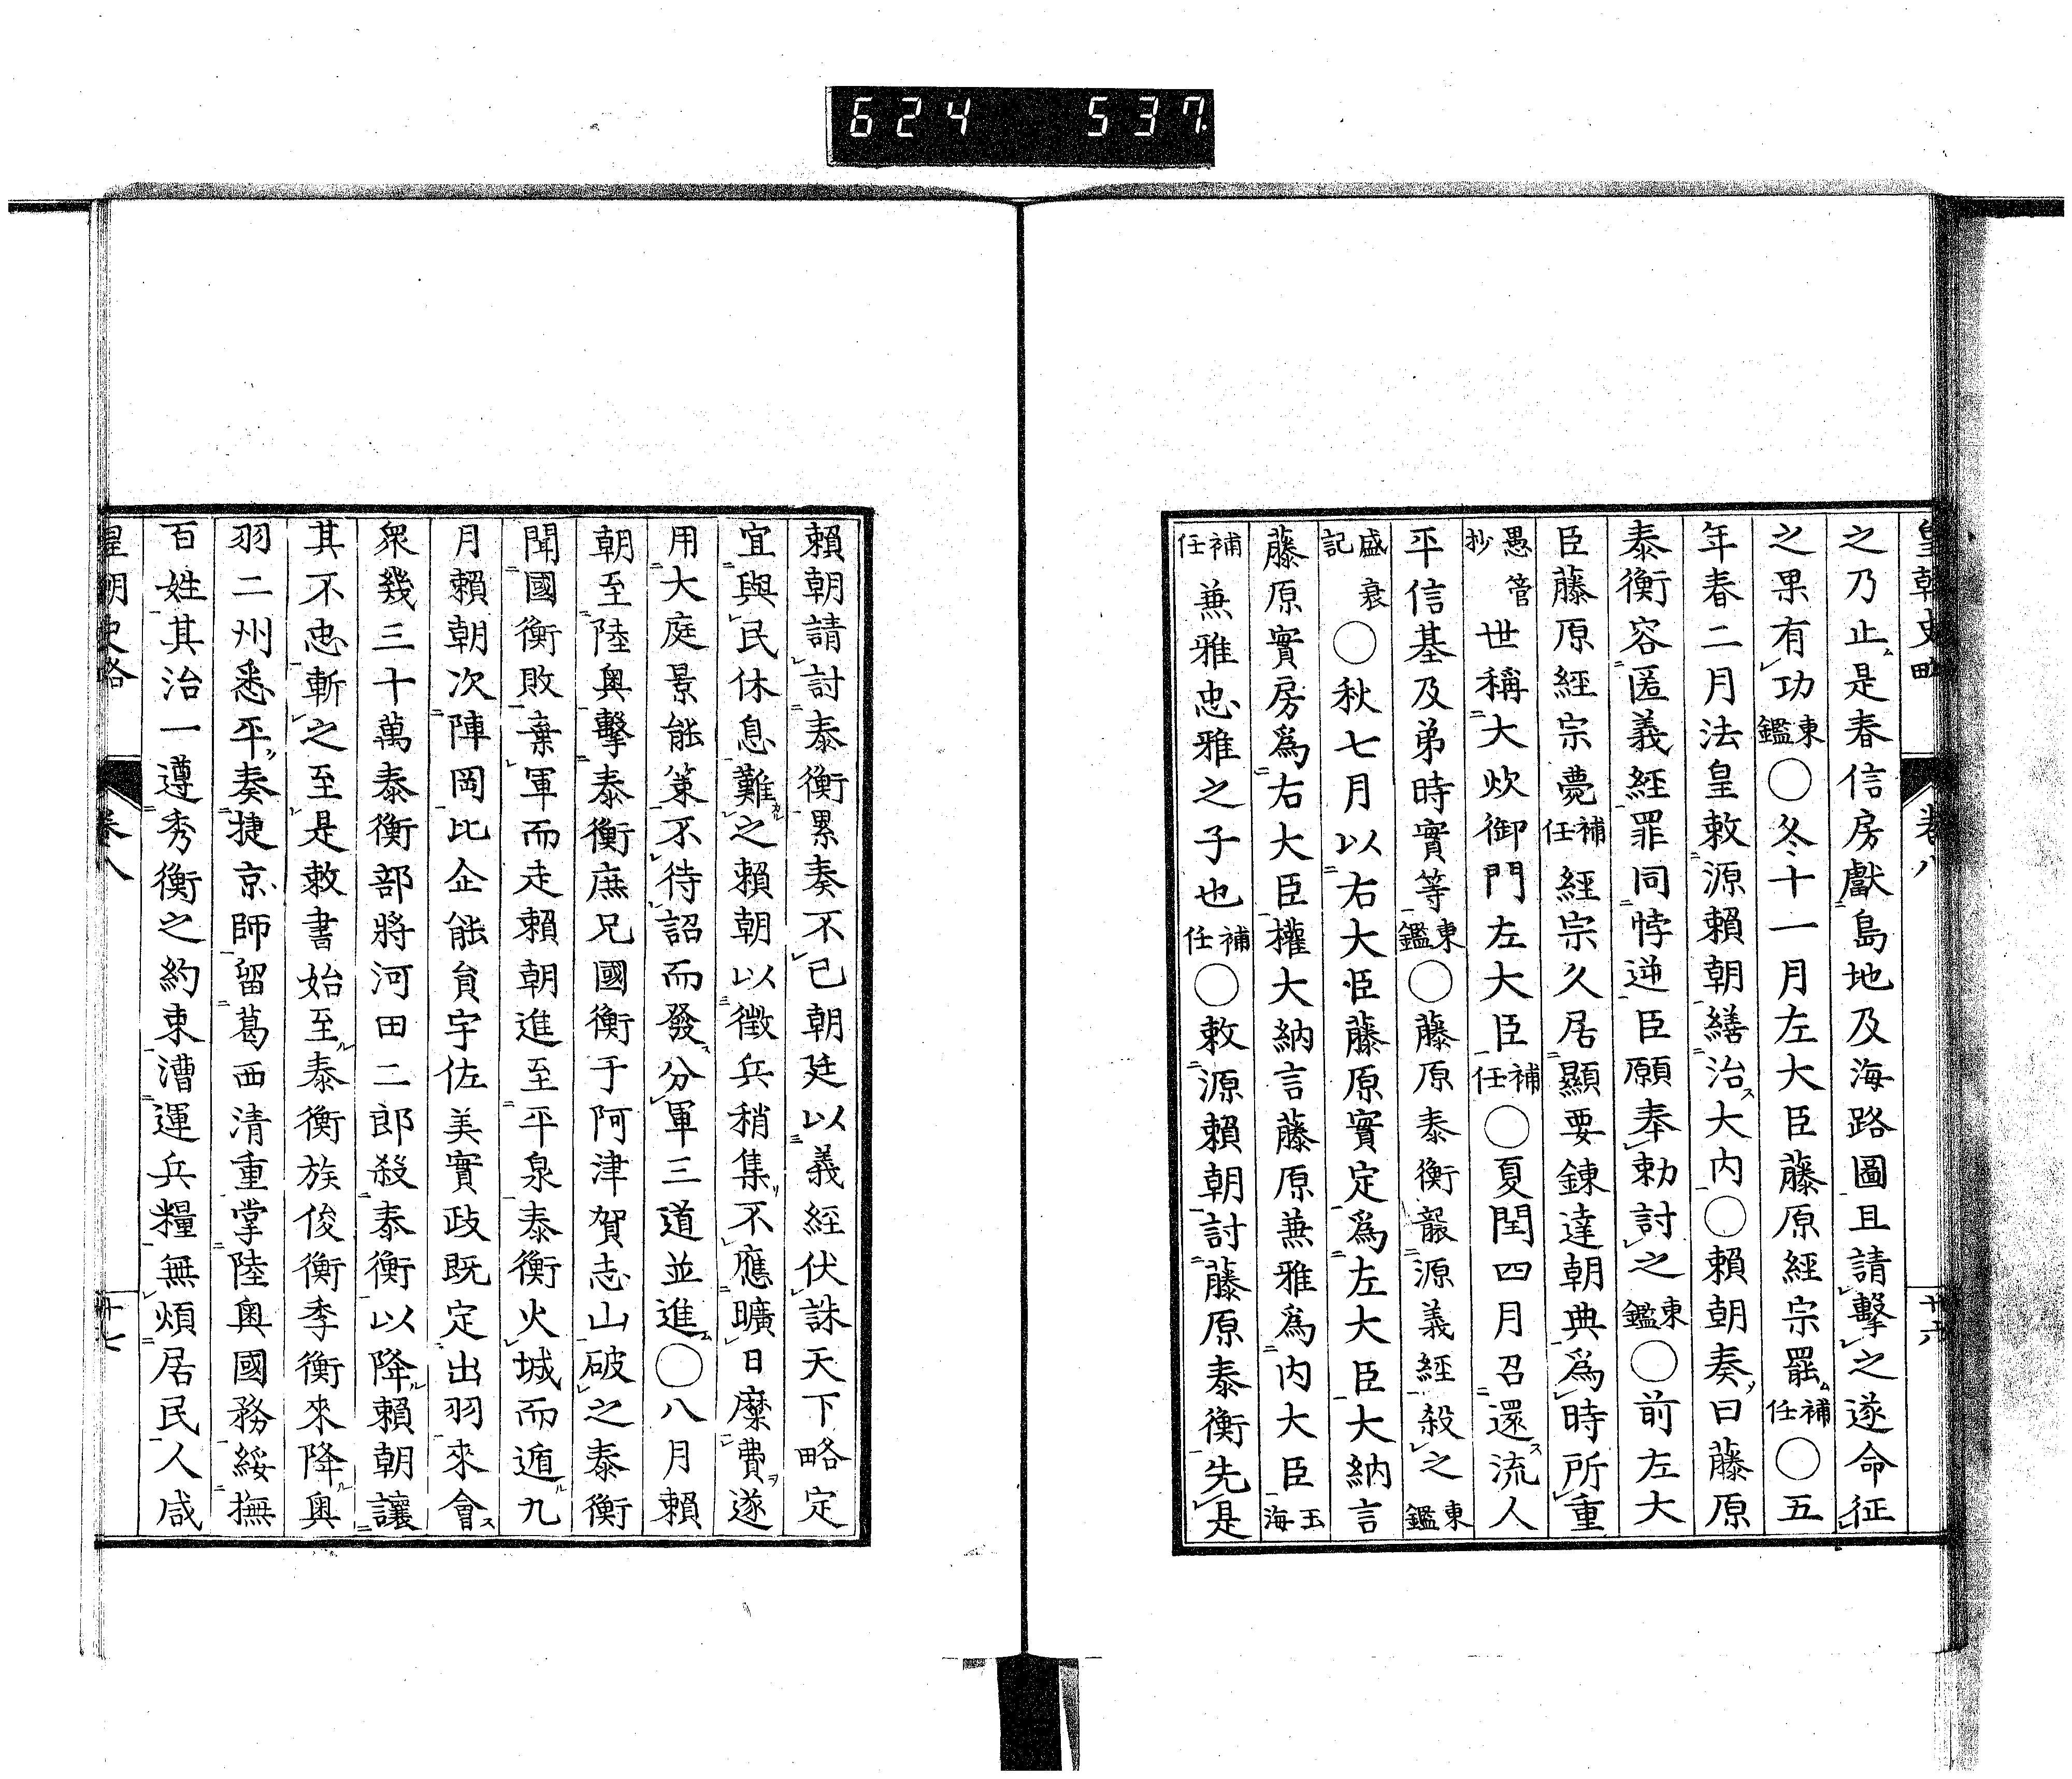 624 537
皇朝史略 卷八 廿六
之乃止是春信房獻島地及海路圖且請擊之遂命征
之果有功東鑑○冬十一月左大臣藤原經宗罷補任○五
年春二月法皇敕源賴朝繕治大内○賴朝奏曰藤原
泰衡容匿義經罪同悖逆臣願奉勅討之東鑑○前左大
臣藤原經宗薨補任經宗久居顯要鍊達朝典爲時所重
愚管抄世稱大炊御門左大臣補任○夏閏四月召還流人
平信基及弟時實等東鑑○藤原泰衡襲源義經殺之東鑑
盛衰記○秋七月以右大臣藤原實定爲左大臣大納言
藤原實房爲右大臣權大納言藤原兼雅爲内大臣玉海
補任兼雅忠雅之子也補任○敕源賴朝討藤原泰衡先是
賴朝請討泰衡累奏不已朝廷以義經伏誅天下略定
宜與民休息難之賴朝以徵兵稍集不應曠日糜費遂
用大庭景能策不待詔而發分軍三道並進○八月賴
朝至陸奧擊泰衡庶兄國衡于阿津賀志山破之泰衡
聞國衡敗棄軍而走賴朝進至平泉泰衡火城而遁九
月賴朝次陣岡比企能員宇佐美實政既定出羽來會
衆幾三十萬泰衡部將河田二郎殺泰衡以降賴朝讓
其不忠斬之至是敕書始至泰衡族俊衡季衡來降奧
羽二州悉平奏捷京師留葛西清重掌陸奧國務綏撫
百姓其治一遵秀衡之約束漕運兵糧無煩居民人咸
皇朝史略 卷八 廿七